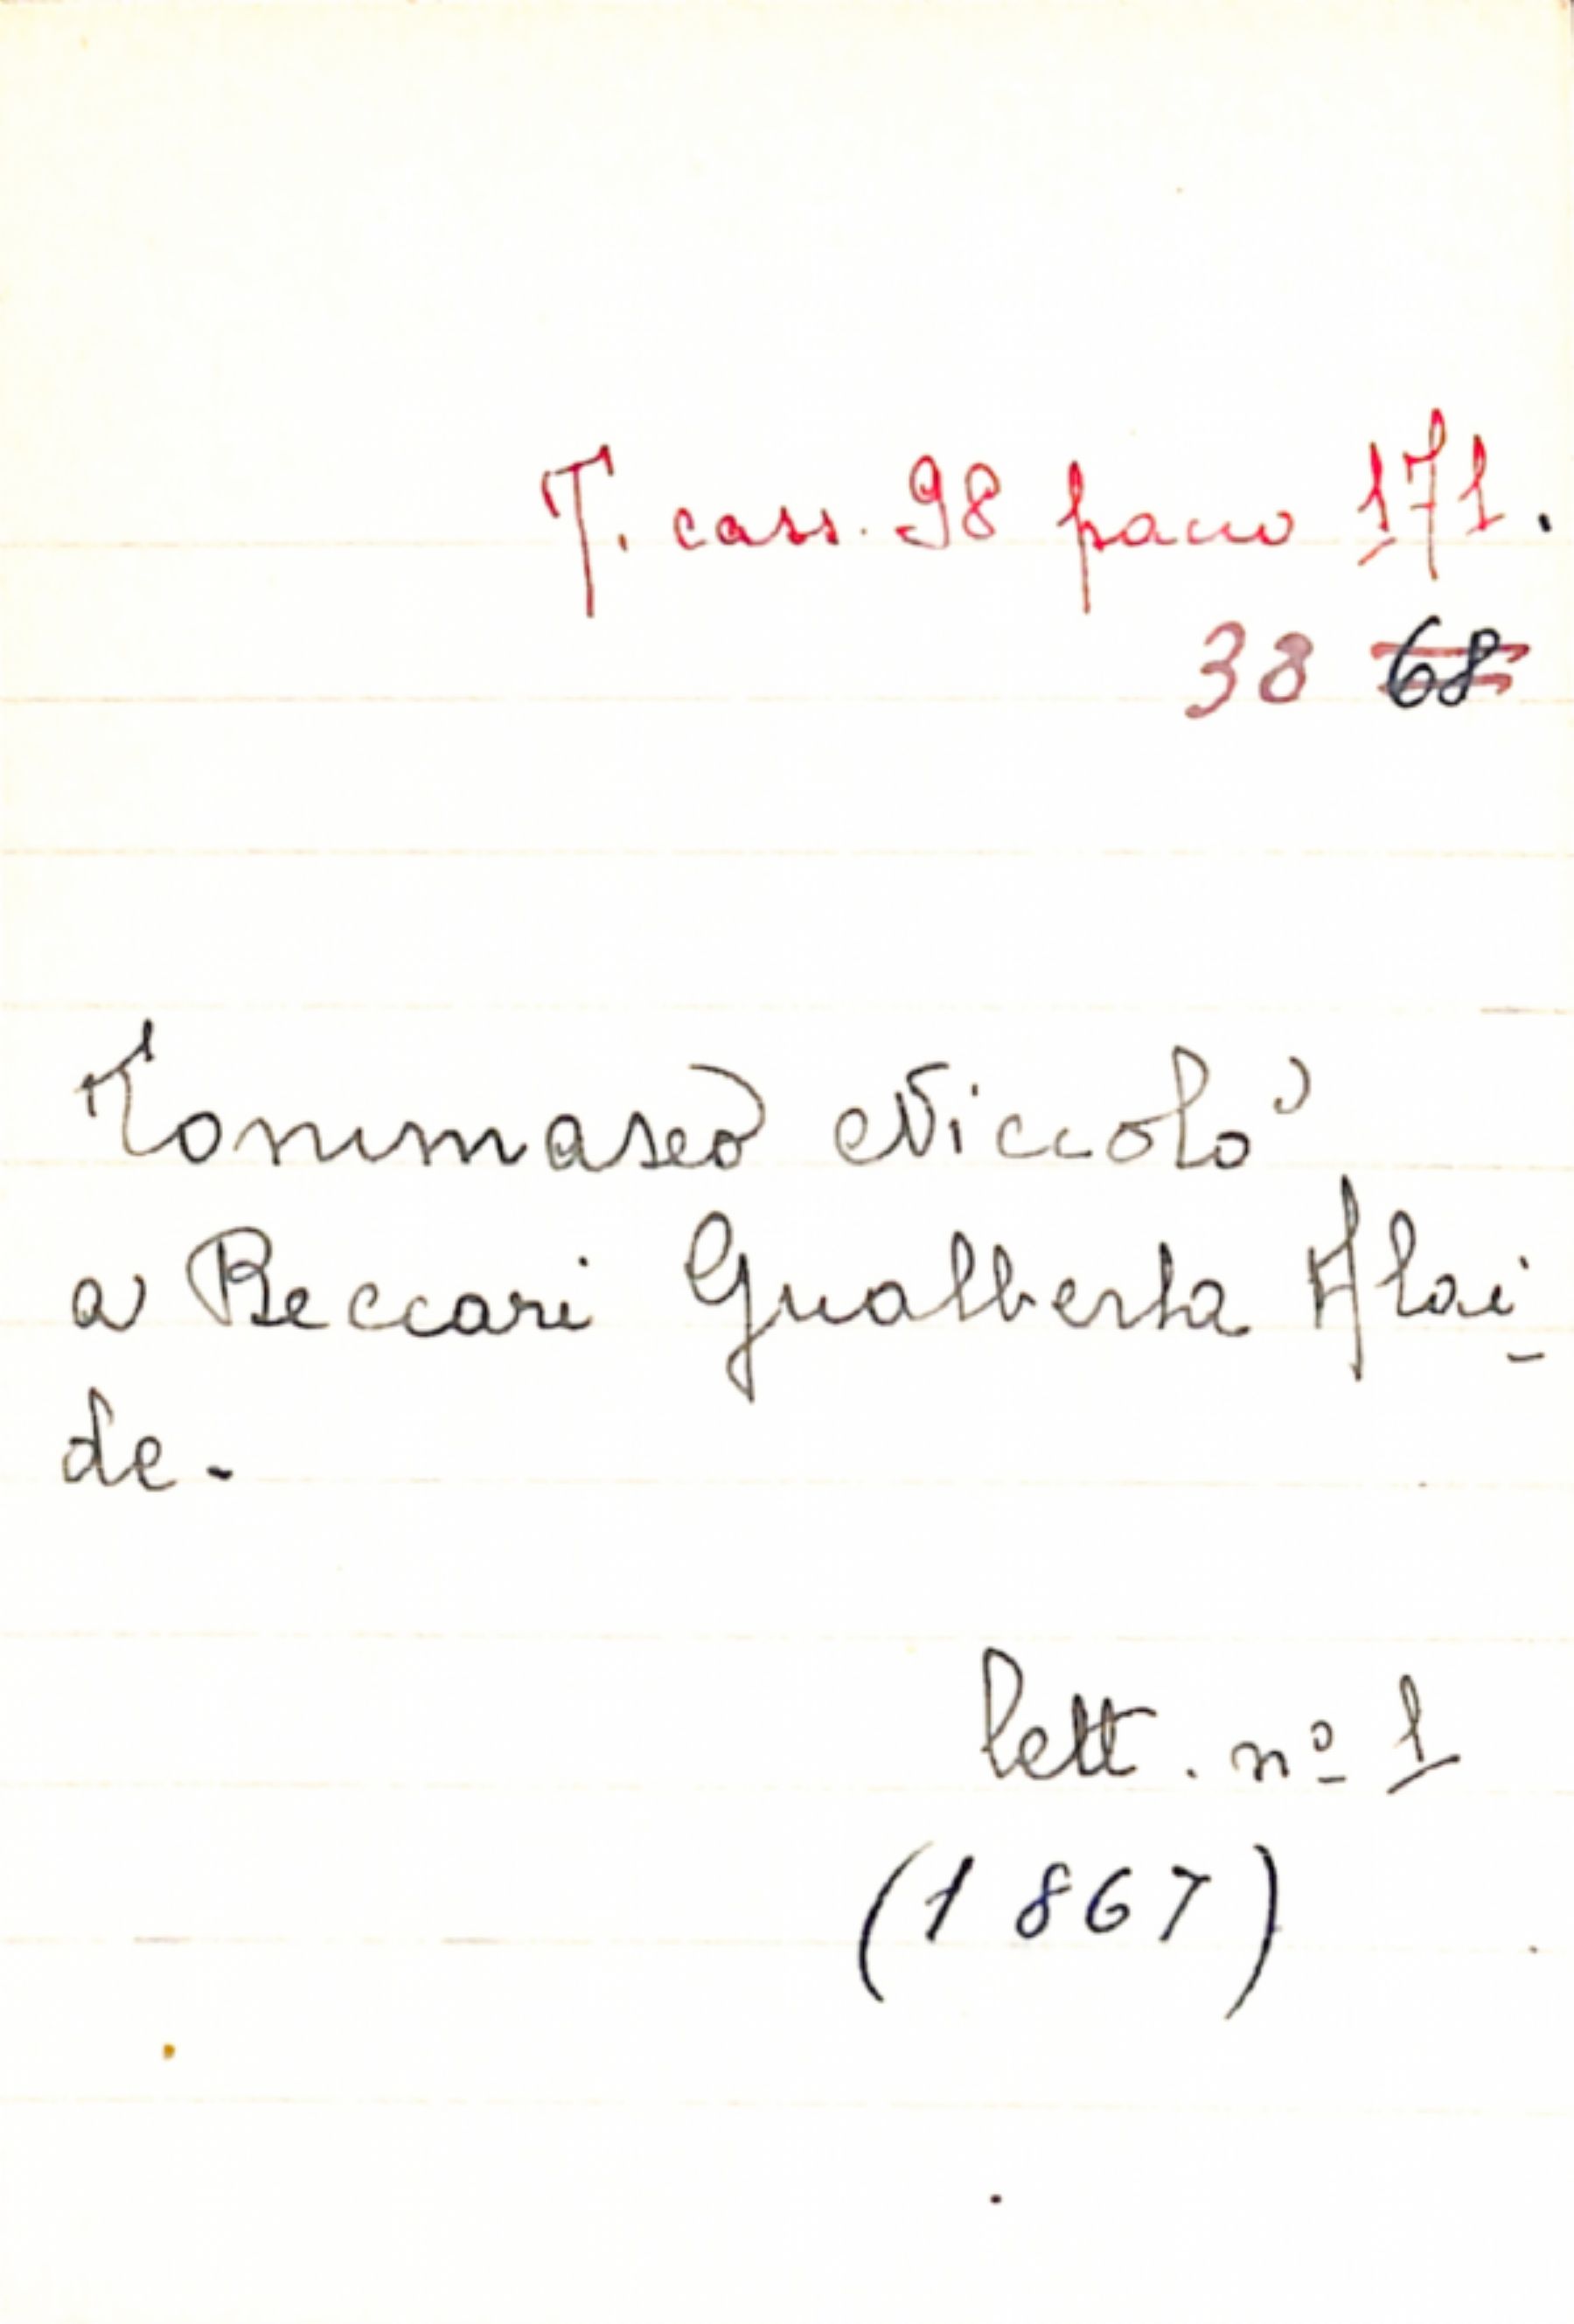 T. cass. 98 pacco 171.
38 68
Tommaseo Niccolò
a Beccari Gualberta Alai-
de.
lett. nº 1
(1867)